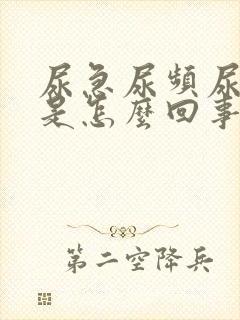 尿急尿頻尿
是怎麼回事
第二空降兵